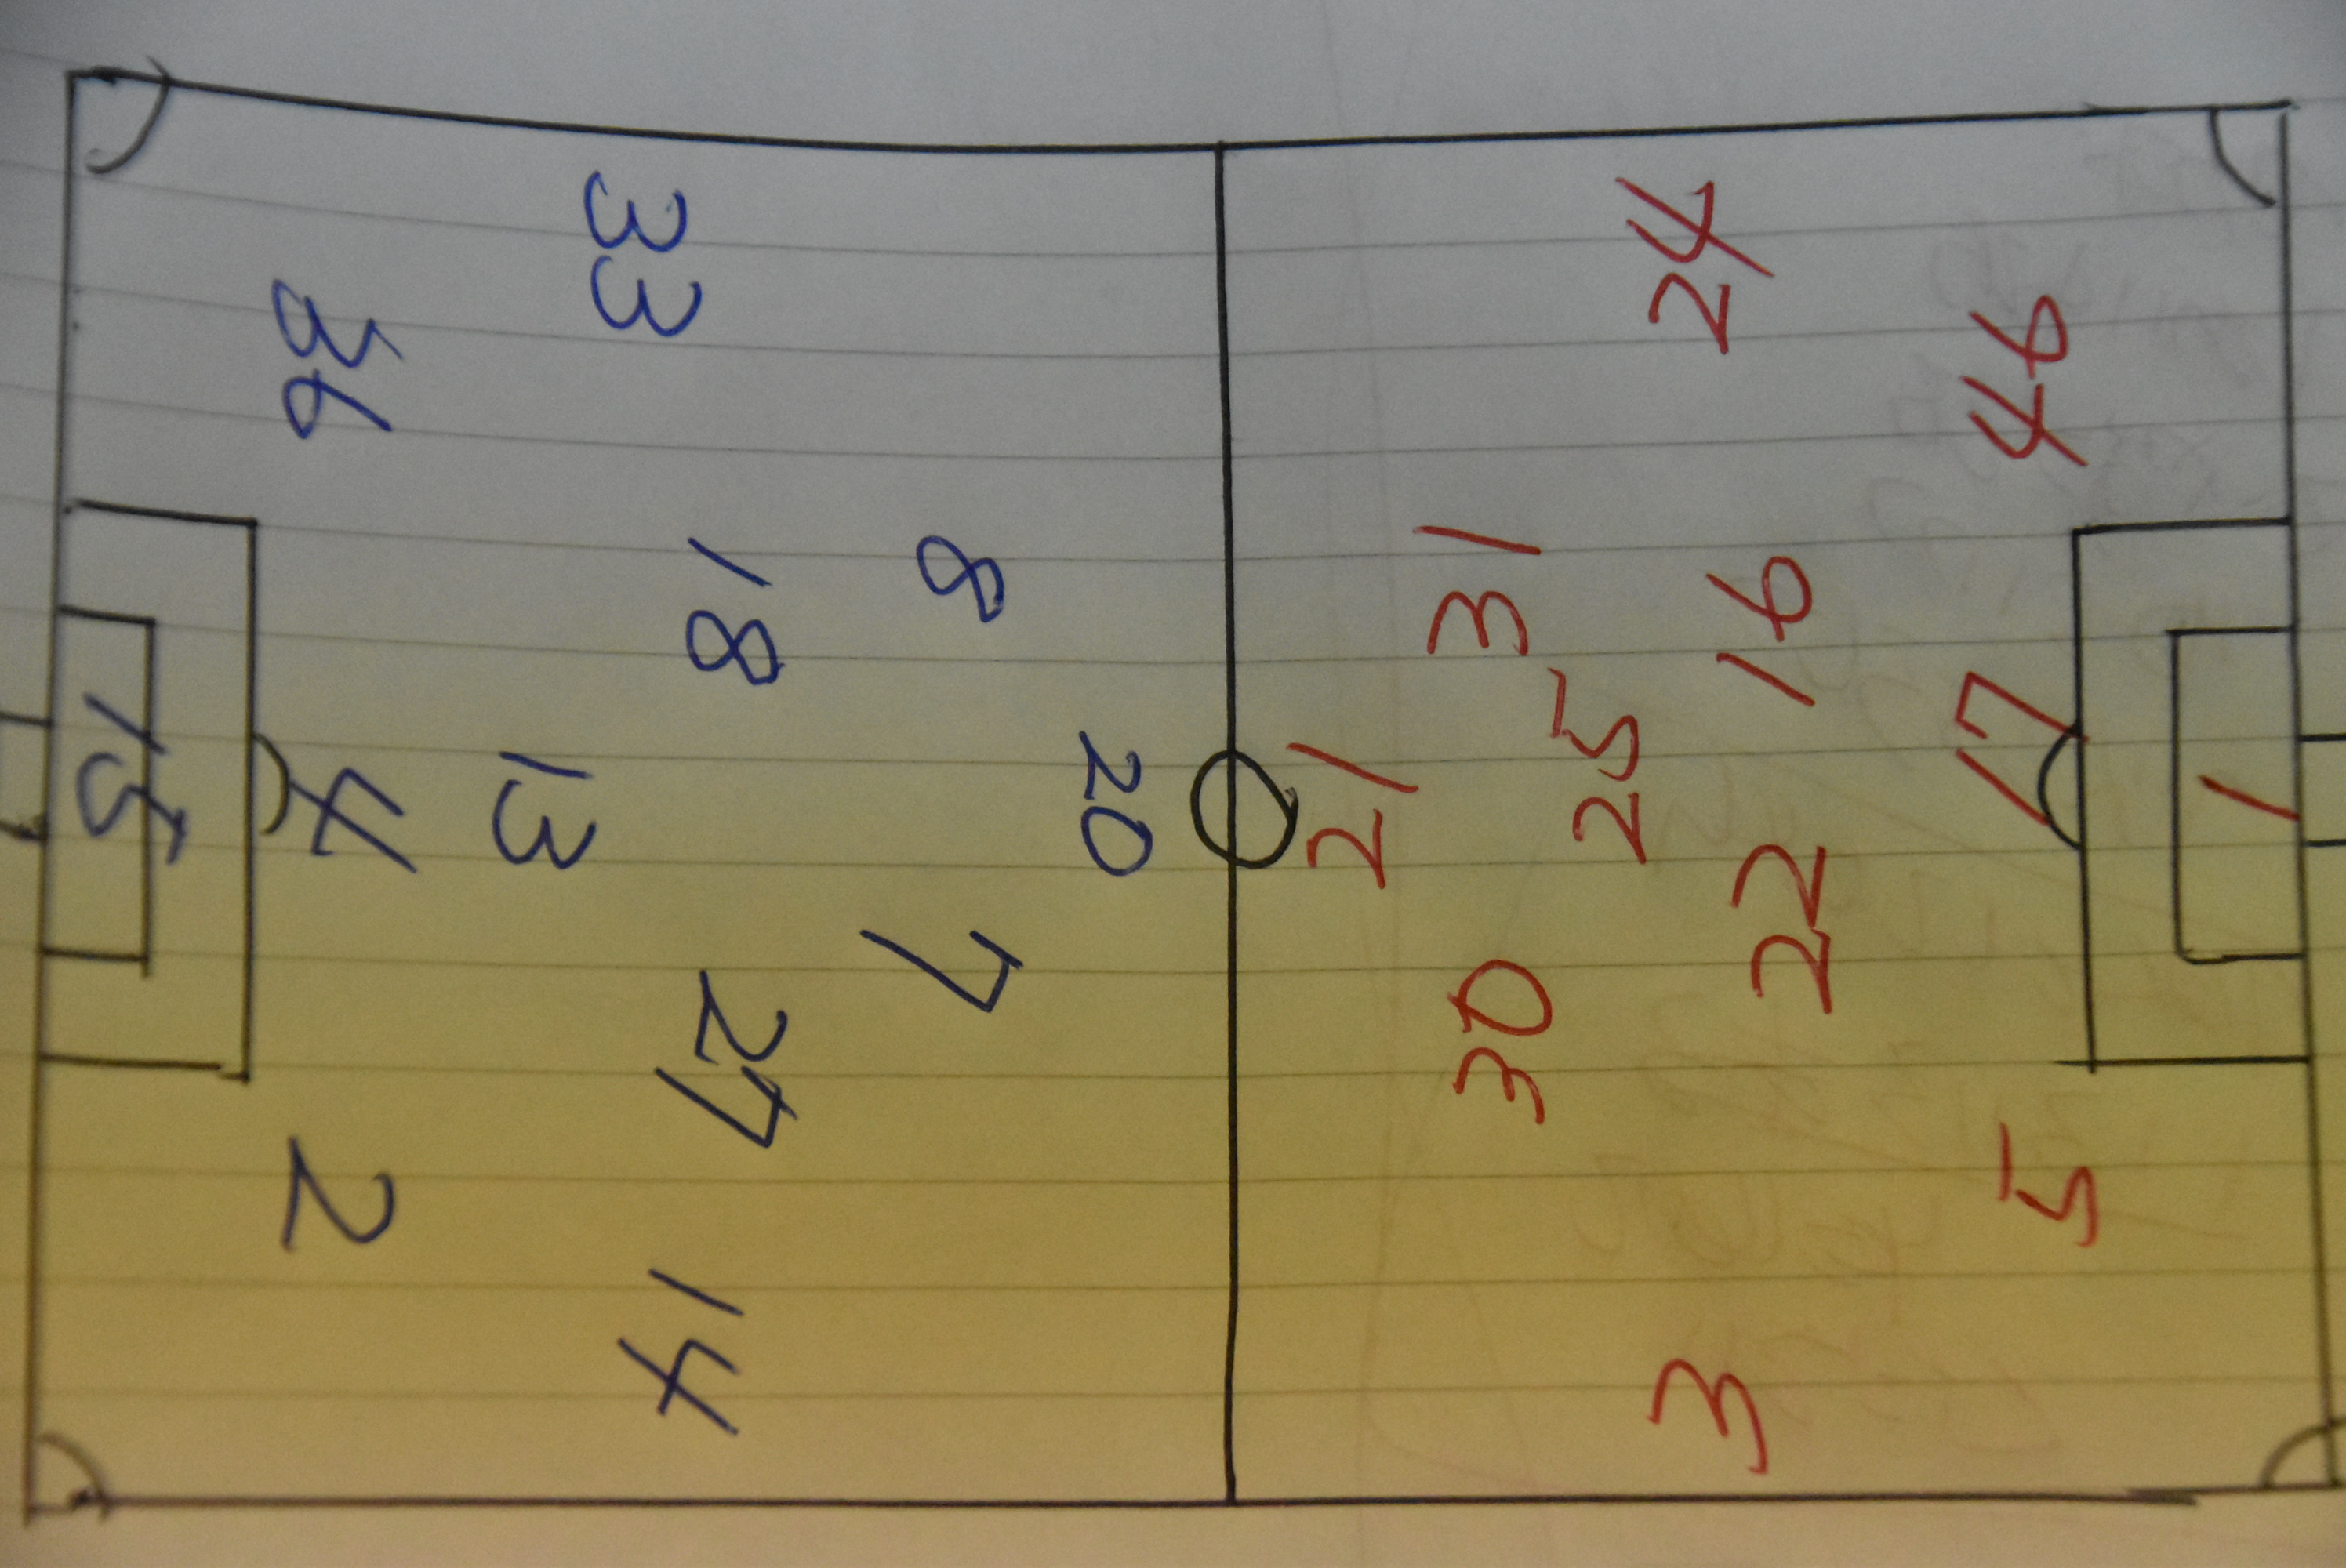 15
36
4
2
13
33
18
27
14
8
7
20
21
31
30
25
24
3
16
22
46
17
5
1